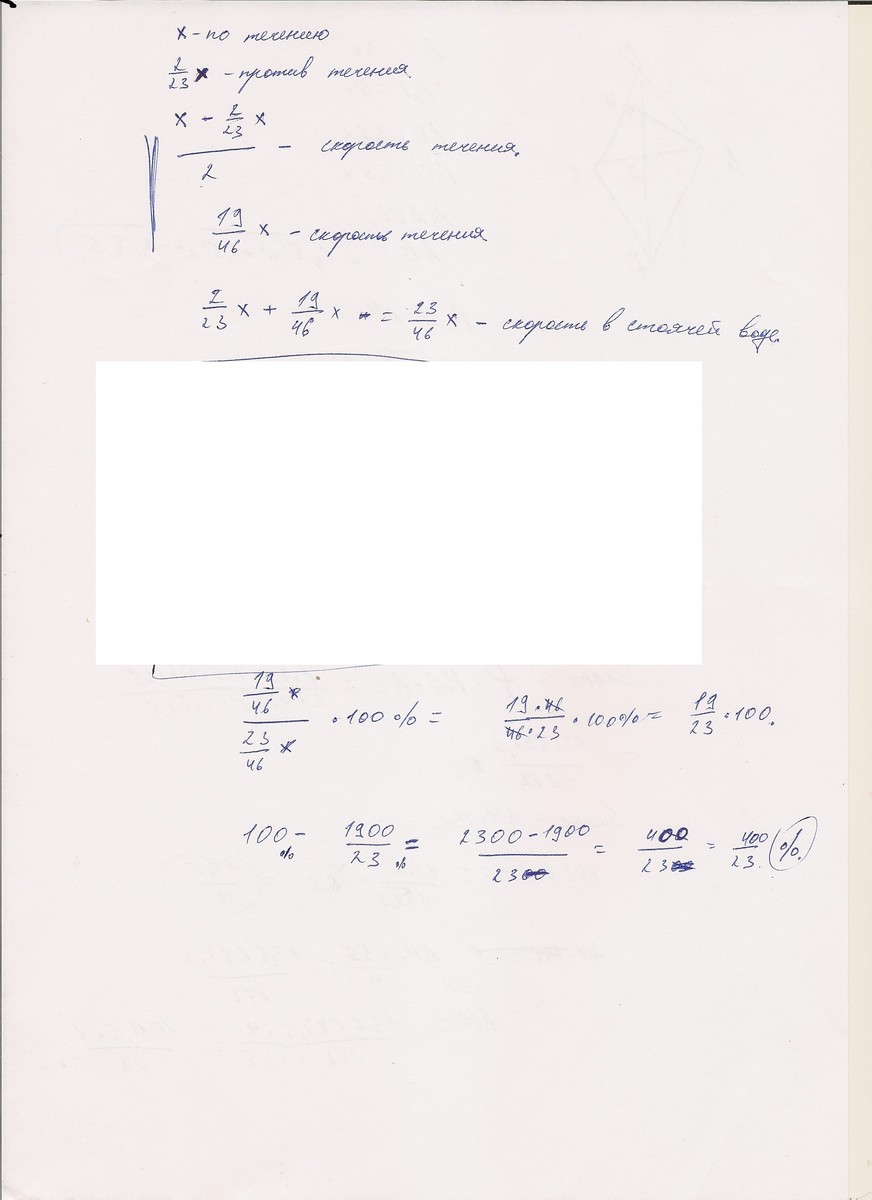 x - по течению
2/23 x - против течения.
(x - 2/23 x)/2 - скорость течения.
19/46 x - скорость течения
2/23 x + 19/46 x = 23/46 x - скорость в стоячей воде.
(19/46 x)/(23/46 x) · 100 % = (19 · 46)/(46 · 23) · 100% = 19/23 · 100.
100% - 1900/23 % = (2300 - 1900)/2300 = 400/2300 = 400/23 %.